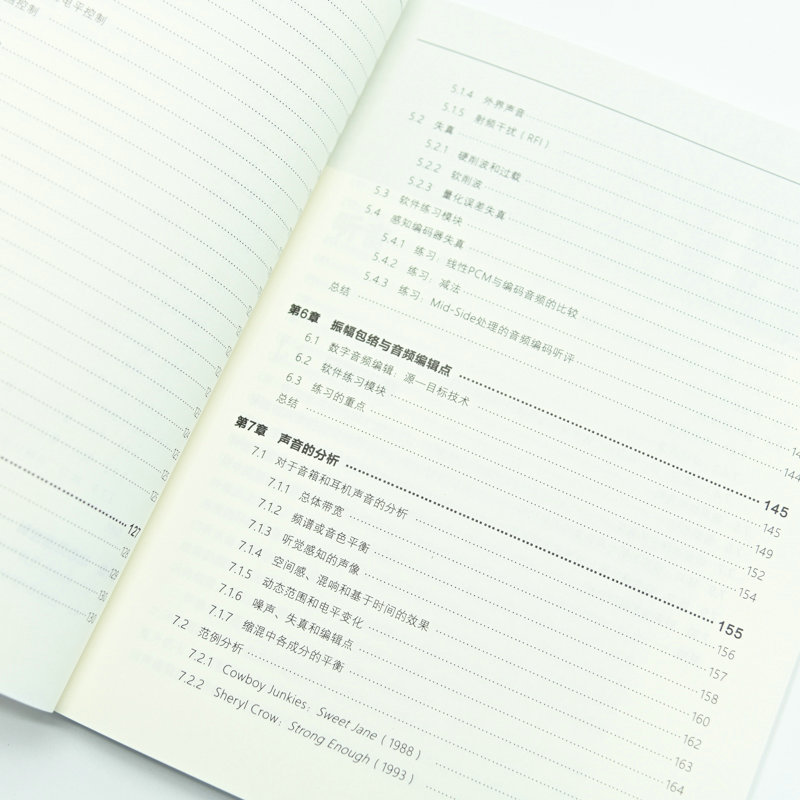 电平控制
控制
127
128
129
130
130
5.1.4 外界声音
5.1.5 射频干扰（RFI）
5.2 失真
5.2.1 硬削波和过载
5.2.2 软削波
5.2.3 量化误差失真
5.3 软件练习模块
5.4 感知编码器失真
5.4.1 练习：线性PCM与编码音频的比较
5.4.2 练习：减法
5.4.3 练习：Mid-Side处理的音频编码听评
总结 144
第6章 振幅包络与音频编辑点 145
6.1 数字音频编辑：源—目标技术 145
6.2 软件练习模块 149
6.3 练习的重点 152
总结 154
第7章 声音的分析 155
7.1 对于音箱和耳机声音的分析 156
7.1.1 总体带宽 157
7.1.2 频谱或音色平衡 158
7.1.3 听觉感知的声像 160
7.1.4 空间感、混响和基于时间的效果 162
7.1.5 动态范围和电平变化 163
7.1.6 噪声、失真和编辑点 164
7.1.7 缩混中各成分的平衡
7.2 范例分析
7.2.1 Cowboy Junkies：Sweet Jane（1988）
7.2.2 Sheryl Crow：Strong Enough（1993）